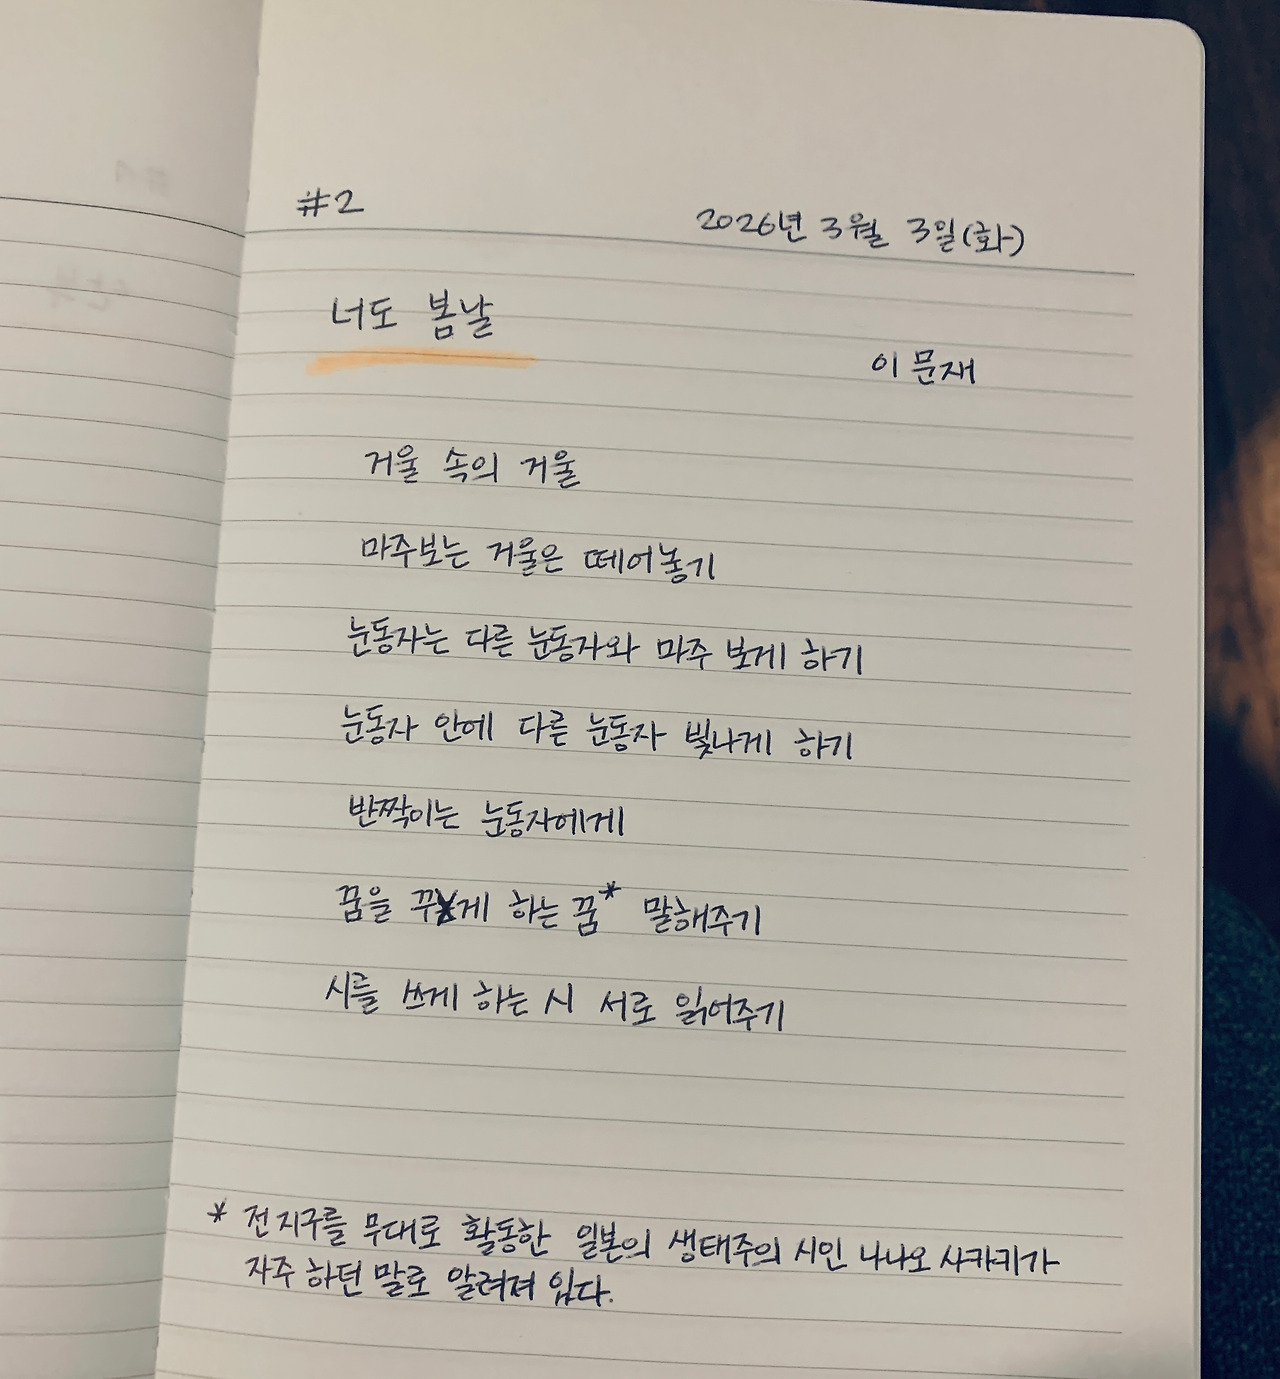 #2
2026년 3월 3일(화)
너도 봄날
이문재
거울 속의 거울
마주보는 거울은 떼어놓기
눈동자는 다른 눈동자와 마주 보게 하기
눈동자 안에 다른 눈동자 빛나게 하기
반짝이는 눈동자에게
꿈을 꾸게 하는 꿈* 말해주기
시를 쓰게 하는 시 서로 읽어주기
* 전 지구를 무대로 활동한 일본의 생태주의 시인 나나오 사카키가
자주 하던 말로 알려져 있다.